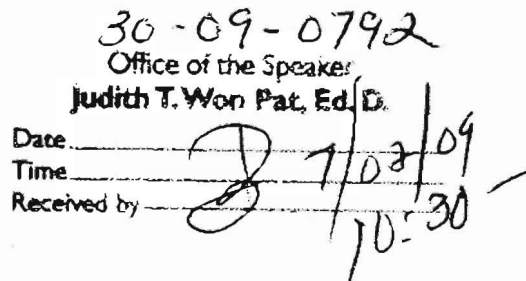 30-09-0792
Office of the Speaker
Judith T. Won Pat, Ed. D.
Date 7/02/09
Time 10:30
Received by